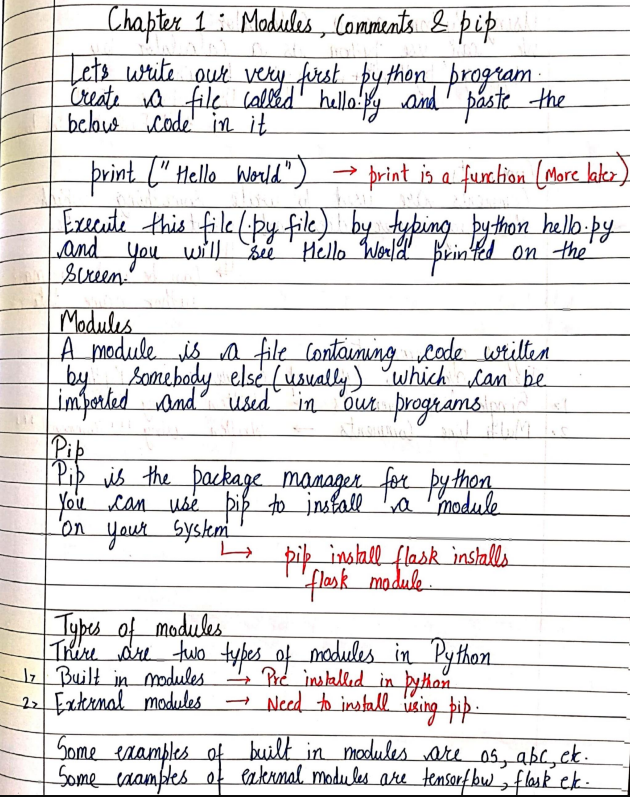 Chapter 1 : Modules, Comments & pip
Lets write our very first python program.
Create a file called hello.py and paste the
below code in it
print ("Hello World") → print is a function (More later)
Execute this file (.py file) by typing python hello.py
and you will see Hello World printed on the
Screen.
Modules
A module is a file containing code written
by somebody else (usually) which can be
imported and used in our programs
Pip
Pip is the package manager for python
You can use pip to install a module
on your system
↳ pip install flask installs
flask module.
Types of modules
There are two types of modules in Python
1> Built in modules → Pre installed in python
2> External modules → Need to install using pip.
Some examples of built in modules are os, abc, etc.
Some examples of external modules are tensorflow, flask etc.